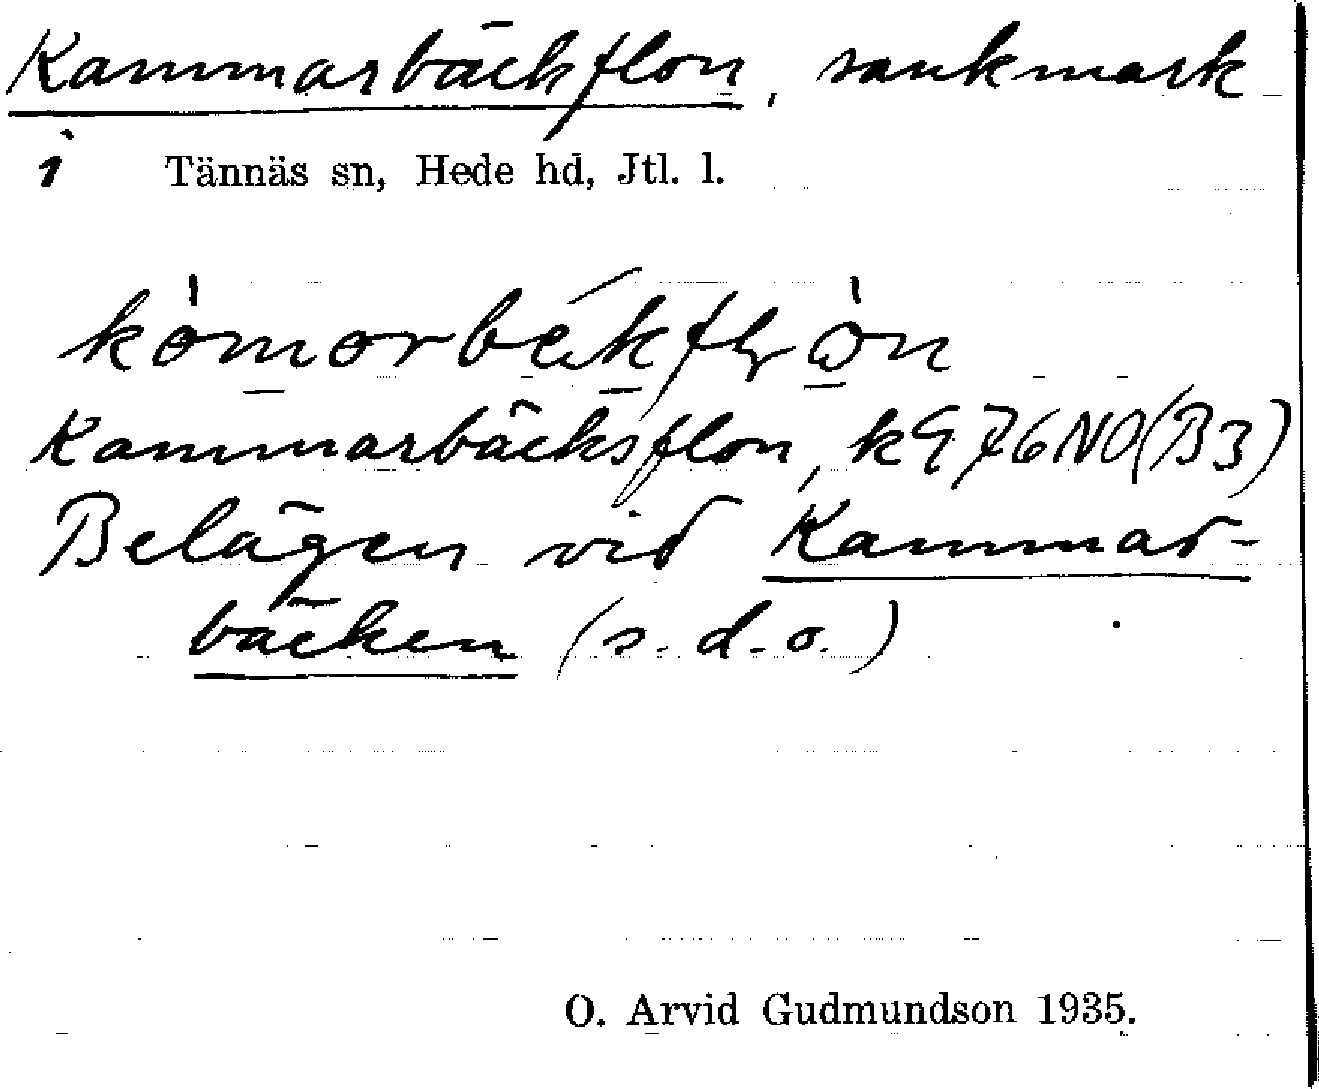 Kammarbäckflon, sankmark
i Tännäs sn, Hede hd, Jtl. l.
Kammarbäcksflon, k G 76 NO (B3)
Belägen vid Kammar-
bäcken (s.d.o.)
O. Arvid Gudmundson 1935.